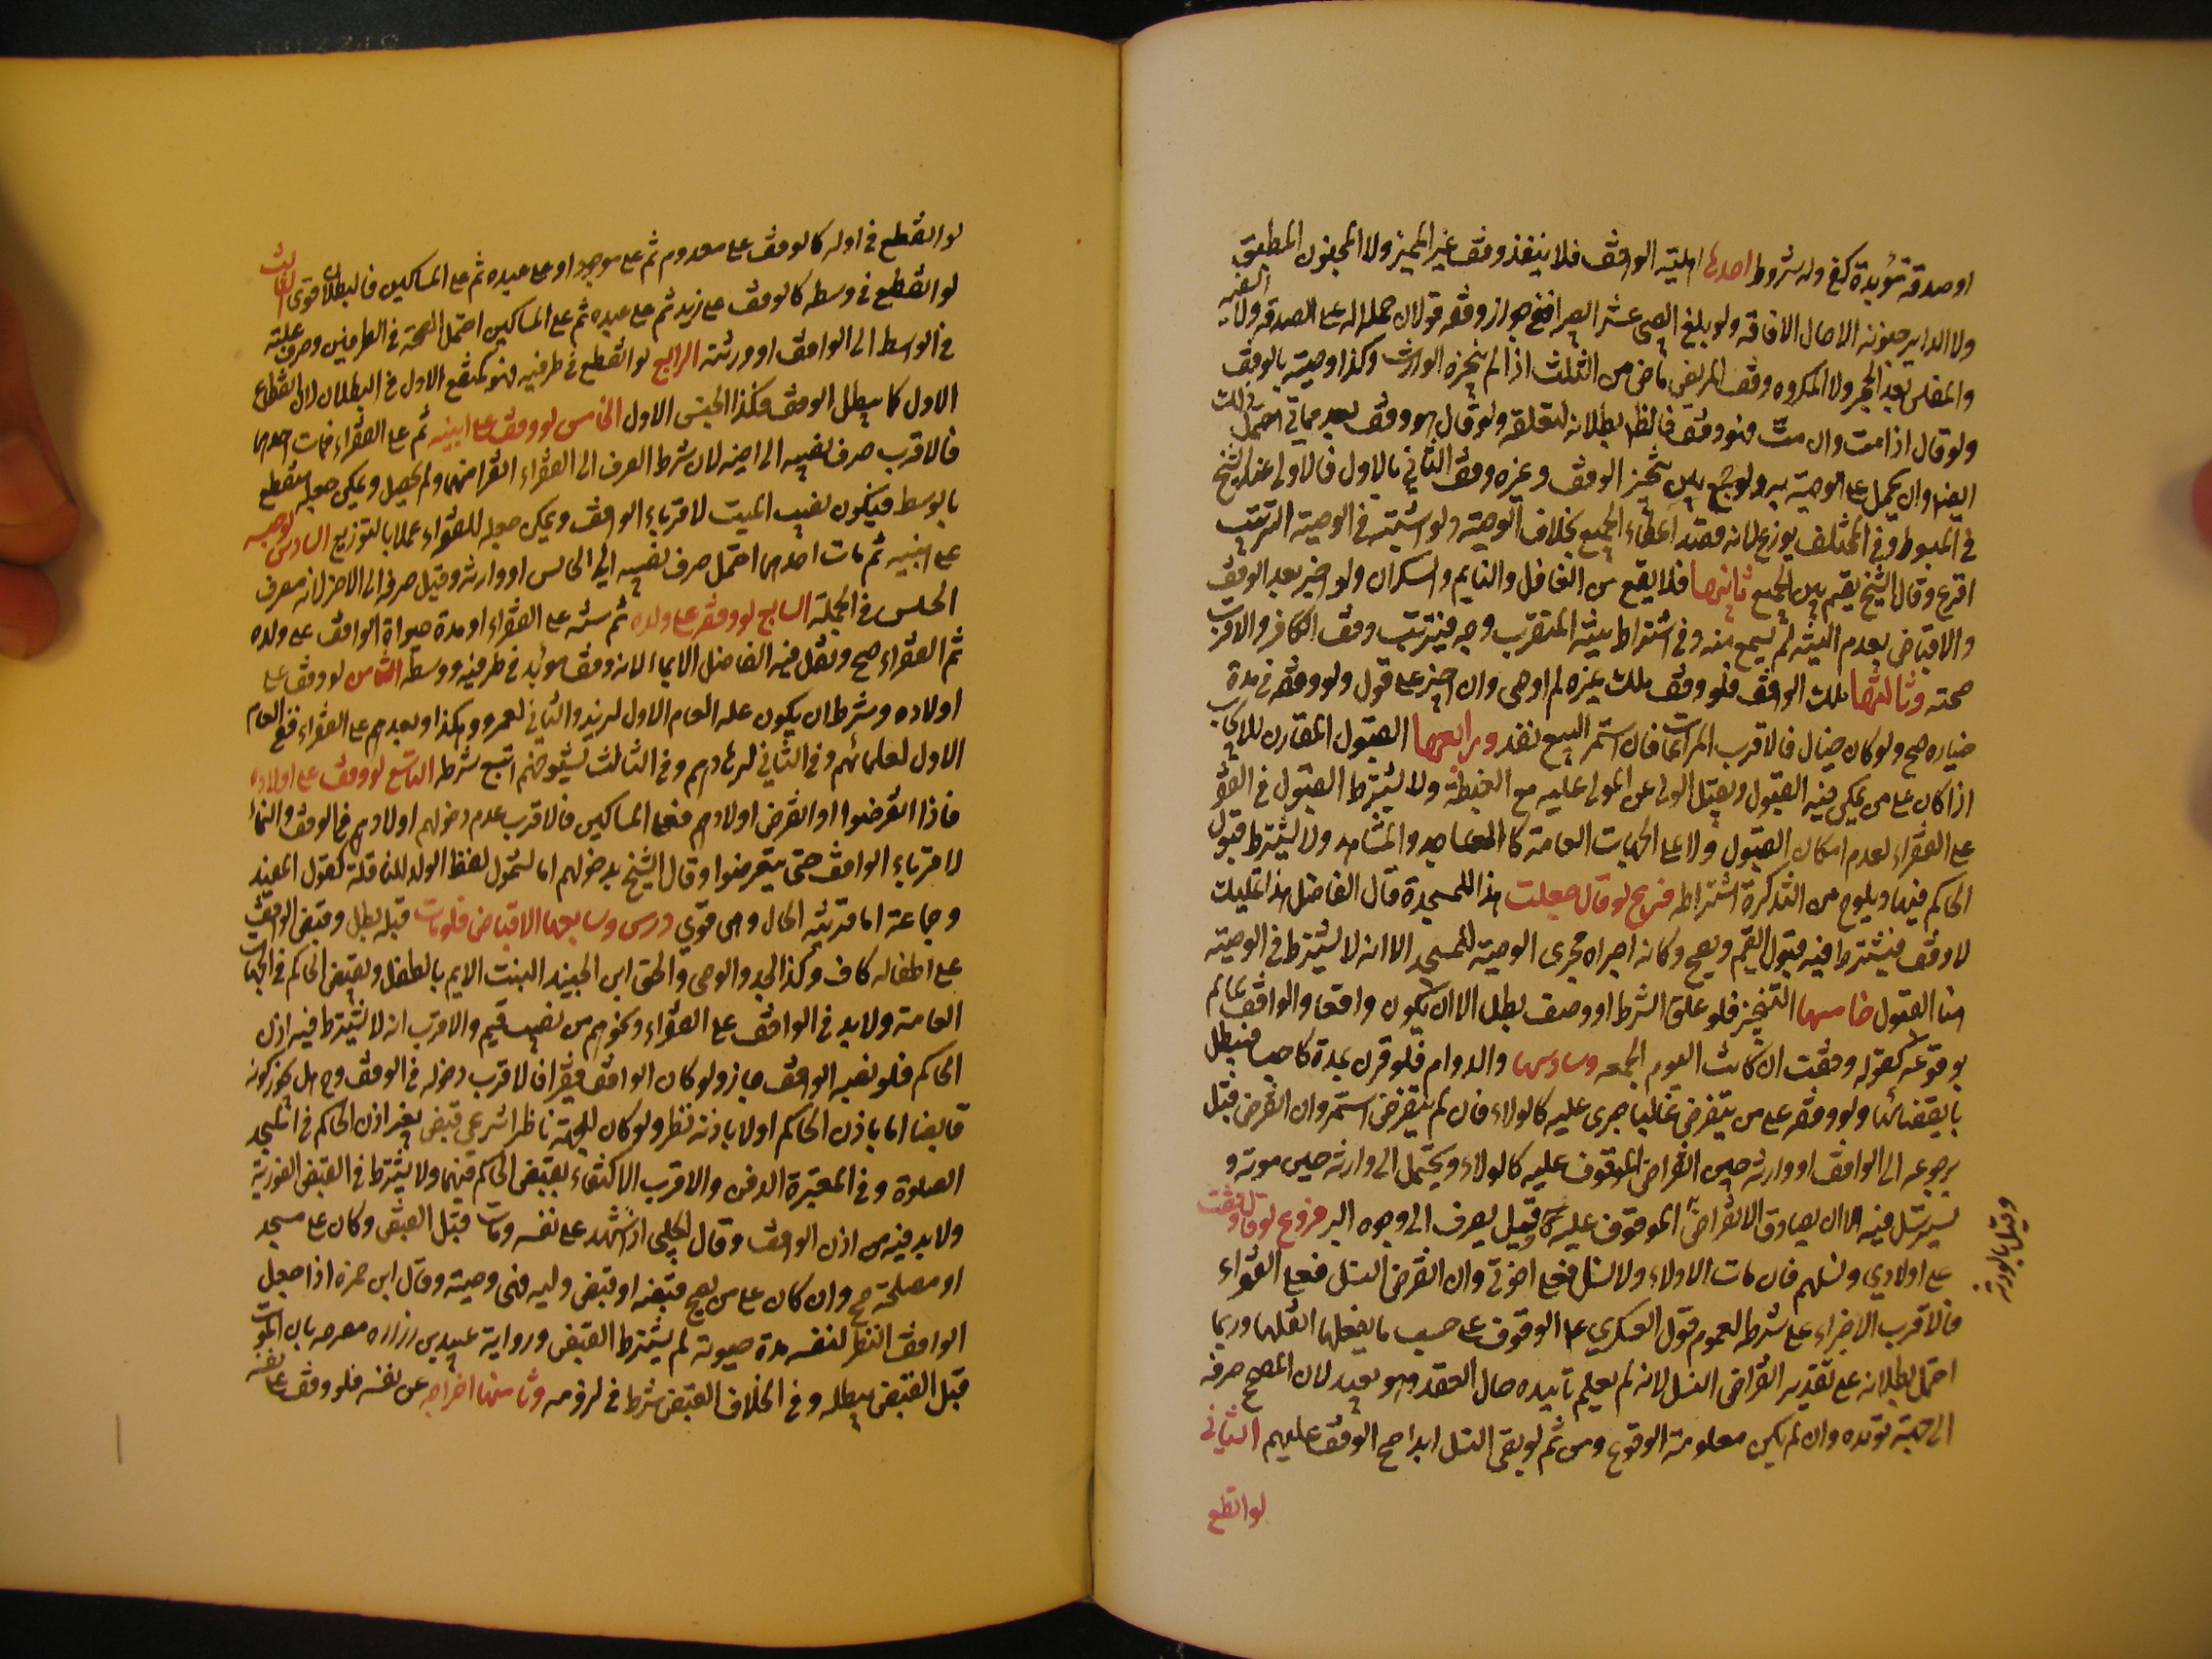 او صدقة مؤبدة كفى وله شروط احدها اهلية الواقف فلا ينفذ وقف غير المميز ولا المجنون المطبق
ولا الداير جنونه الا حال الافاقة ولو بلغ الصبى عشرا بصيرا ففي جواز وقفه قولان حملا له على الصدقة ولا السفيه
والمفلس بعد الحجر ولا المكروه وقف المريض ماض من الثلث اذا لم يجزه الوارث وكذا وصيته بالوقف
ولو قال اذا مت وان مت فهو وقف فالظ بطلانه لتعلقه ولو قال هو وقف بعد مماتي احتمل ذلك
ايضا وان يحمل على الوصية به ولو جمع بين تنجيز الوقف وغيره وقف الثاني بالاول فالاولى عند الشيخ
في المبسوط وفي المختلف يوزع لانه قصد اعطاء الجميع بخلاف الوصية ولو اشتبه في الوصية الترتيب
اقرع وقال الشيخ يقسم بين الجميع ثانيها فلا يقع من الغافل والنايم والسكران ولو اخبر بعد الوقف
والاقباض بعدم النية لم يسمع منه وفي اشتراط نية التقرب وجه فيترتب وقف الكافر والاقرب
صحته وثالثها ملك الواقف فلو وقف ملك غيره لم اوصى وان اجيز على قول ولو وقفه في مدة
خياره صح ولو كان خيال فالاقرب المراعاة فان استمر البيع نفذ ورابعها القبول المقارن للايجاب
اذا كان على من يمكن فيه القبول ويقبل الولي عن المولى عليه مع الغبطة ولا يشترط القبول في الوقف
على الفقراء لعدم امكان القبول ولا على الجهات العامة كالمساجد والمشاهد ولا يشترط قبول
الحاكم فيها ويلوح من التذكرة اشتراطه فرع لو قال جعلت هذا للمسجدة قال الفاضل هذا تمليك
لا وقف فيشترط فيه قبول القيم ويصح وكانه اجراه مجرى الوصية للمسجد الا انه لا يشترط في الوصية
هنا القبول خامسها التنجيز فلو علق الشرط او وصف بطل الا ان يكون واقعا والواقف عالم
بوقوعه كقوله وقفت ان كانت اليوم الجمعه وسادسها والدوام فلو قرن بمدة كان حبسا فيبطل
بانقضائها ولو وقفه على من ينقرض غالبا جرى عليه كالاولاد فان لم ينقرض استمر وان انقرض قيل
يرجوعه الى الواقف او وارثه حين انقراض الموقوف عليه كالولاد ويحتمل الى وارثه حين موته و
يسترسل فيه الا ان يصادق الانقراض الموقوف عليه وقيل يصرف الى وجوه البر فروع لو قال وقفت
على اولادي ونسلهم فان مات الاولاد ولا نسل فعلى اخوتي وان انقرض النسل فعلى الفقراء
فالاقرب الاجراء على شرطه لعموم قول العسكري ع الوقوف على حسب ما يقفها اهلها وربما
احتمل بطلانه على تقدير انقراض النسل لانه لم يعلم تابيده حال العقد وهو بعيد لان المصحح صرفه
الى جهة مؤبده وان لم يكن معلومة الوقوع ومن ثم لو بقى النسل ابدا صح الوقف عليهم الثاني
لو انقطع
وقيل بالورثة
لو انقطع في اوله كالوقف على معدوم ثم على موجود او على عبده ثم على المساكين فالبطلان اقوى الثالث
لو انقطع في وسطه كالوقف على زيد ثم على عبده ثم على المساكين احتمل الصحة في الطرفين وصرف غلته
في الوسط الى الواقف او ورثته الرابع لو انقطع في طرفيه فهو كمنقطع الاول في البطلان لان انقطاع
الاول كما يبطل الوقف فكذا الحبس الاول الخامس لو وقف على ابنيه ثم على الفقراء فمات احدهما
فالاقرب صرف نصيبه الى اخيه لان شرط الصرف الى الفقراء انقراضهما ولم يحصل ويمكن جعله منقطع
بالوسط فيكون نصيب الميت لاقرباء الواقف ويمكن جعله للفقراء عملا بالتوزيع السادس لو حبسه
على ابنيه ثم مات احدهما احتمل صرف نصيبه الى الحابس او وارثه وقيل صرفه الى الاخر لانه مصرف
الحبس في الجملة السابع لو وقف على ولده ثم سنة على الفقراء او مدة حيوة الواقف على ولده
ثم الفقراء صح ونقل فيه الفاضل الاجماع لانه وقف مؤبد في طرفيه ووسطه الثامن لو وقف على
اولاده وشرط ان يكون غلة العام الاول لزيد والثاني لعمرو وهكذا وبعدهم على الفقراء ففي العام
الاول لعلمائهم وفي الثاني لزهادهم وفي الثالث لشيوخهم اتبع شرطه التاسع لو وقف على اولاده
فاذا انقرضوا او انقرض اولادهم فعلى المساكين فالاقرب عدم دخولهم اولادهم في الوقف والنماء
لاقرباء الواقف حتى ينقرضوا وقال الشيخ بدخولهم اما لشمول لفظ الولد للنافلة كقول المفيد
وجماعة اما قرينة الحال وهى قوي درس وسابعها الاقباض فلو مات قبله بطل وقبض الواقف
على اطفاله كاف وكذا الجد والوصى والحق ابن الجنيد البنت الايم بالطفل ويقبض الحاكم في الجهات
العامة ولا بد في الواقف على الفقراء ونحوهم من نصيب قيم والاقرب انه لا يشترط فيه اذن
الحاكم فلو نصبه الواقف جاز ولو كان الواقف فقيرا فالاقرب دخوله في الوقف وهل يجوز كونه
قابضا اما باذن الحاكم او لا باذنه نظر ولو كان للجهة ناظر شرعي قبض بغير اذن الحاكم في المسجد
الصلوة وفي المقبرة الدفن والاقرب الاكتفاء بقبض الحاكم فيهما ولا يشترط في القبض الفورية
ولا بد فيه من اذن الواقف وقال الحلبي اذا اشهد على نفسه ومات قبل القبض وكان على مسجد
او مصلحة صح وان كان على من يصح قبضه او قبض وليه فهى وصية وقال ابن حمزه اذا جعل
الواقف النظر لنفسه مدة حيوته لم يشترط القبض ورواية عبيد بن زراره مصرحه بان الموت
قبل القبض يبطله وفي الخلاف القبض شرط في لزومه وثامنها اخراجه عن نفسه فلو وقف على نفسه